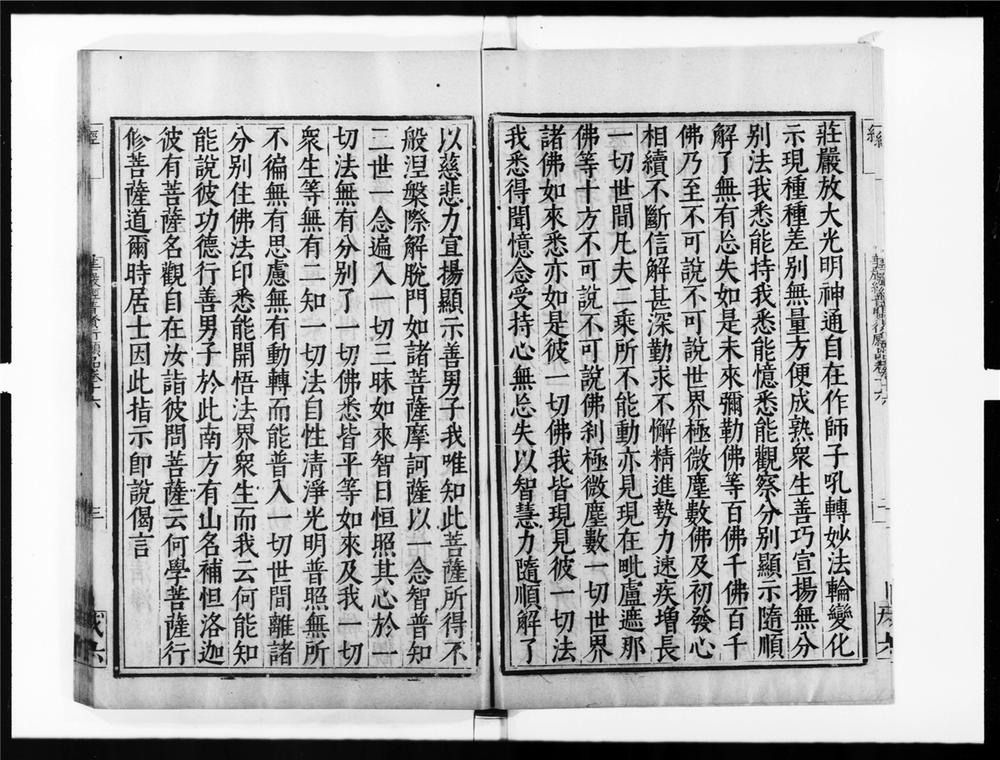 莊嚴放大光明神通自在作師子吼轉妙法輪變化
示現種種差別無量方便成熟衆生善巧宣揚無分
別法我悉能持我悉能憶悉能觀察分別顯示隨順
解了無有忘失如是未來彌勒佛等百佛千佛百千
佛乃至不可說不可說世界極微塵數佛及初發心
相續不斷信解甚深勤求不懈精進勢力速疾增長
一切世間凡夫二乘所不能動亦見現在毗盧遮那
佛等十方不可說不可說佛刹極微塵數一切世界
諸佛如來悉亦如是彼一切佛我皆現見彼一切法
我悉得聞憶念受持心無忘失以智慧力隨順解了
以慈悲力宣揚顯示善男子我唯知此菩薩所得不
般涅槃際解脫門如諸菩薩摩訶薩以一念智普知
三世一念遍入一切三昧如來智日恒照其心於一
切法無有分別了一切佛悉皆平等如來及我一切
衆生等無有二知一切法自性清淨光明普照無所
不徧無有思慮無有動轉而能普入一切世間離諸
分別住佛法印悉能開悟法界衆生而我云何能知
能說彼功德行善男子於此南方有山名補怛洛迦
彼有菩薩名觀自在汝詣彼問菩薩云何學菩薩行
修菩薩道爾時居士因此指示即說偈言
經
三